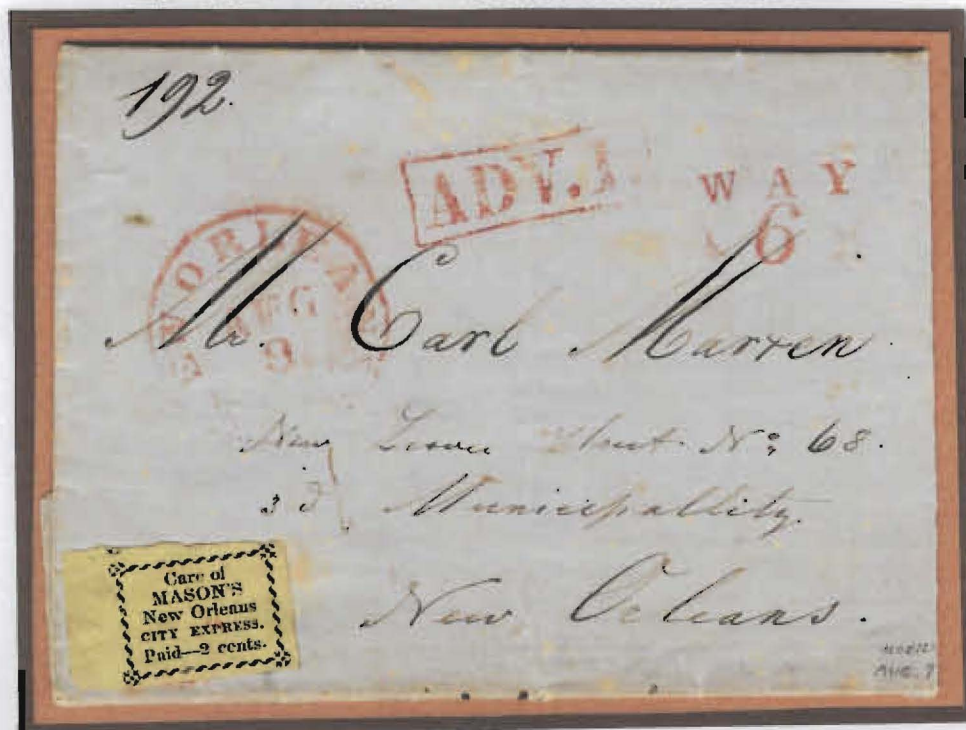 192.
ADV.
WAY
6
ORLEA
AUG
9
Mr. Carl Marren
New Street No: 68.
3d Municipallity.
New Orleans.
Care of
MASON'S
New Orleans
CITY EXPRESS.
Paid—2 cents.
AUG. 9